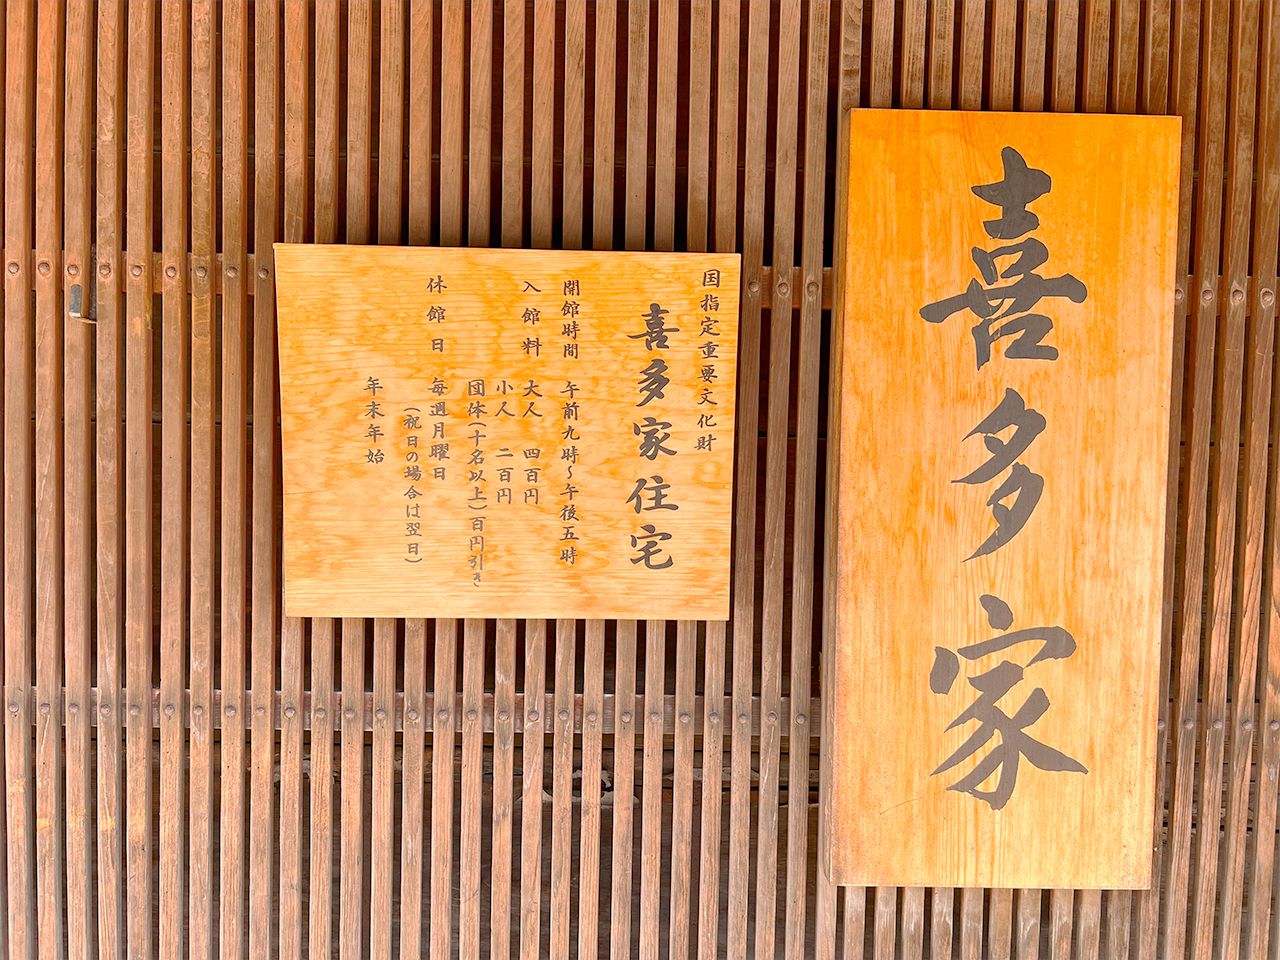 喜多家
国指定重要文化財
喜多家住宅
開館時間 午前九時~午後五時
入館料 大人 四百円
小人 二百円
団体(十名以上)百円引き
休館日 毎週月曜日
(祝日の場合は翌日)
年末年始